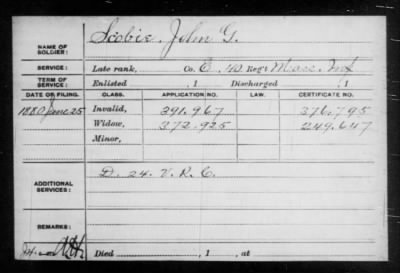 NAME OF SOLDIER: Scobie, John G.
SERVICE: Late rank, Co. E, 40 Reg't Mass. Inf
TERM OF SERVICE: Enlisted , 1 Discharged , 1
DATE OF FILING. CLASS. APPLICATION NO. LAW. CERTIFICATE NO.
1880 June 25 Invalid, 391.967 376.795
Widow, 372.925 249.647
Minor,
ADDITIONAL SERVICES: D. 24. V. R. C.
REMARKS:
Died , 1 , at